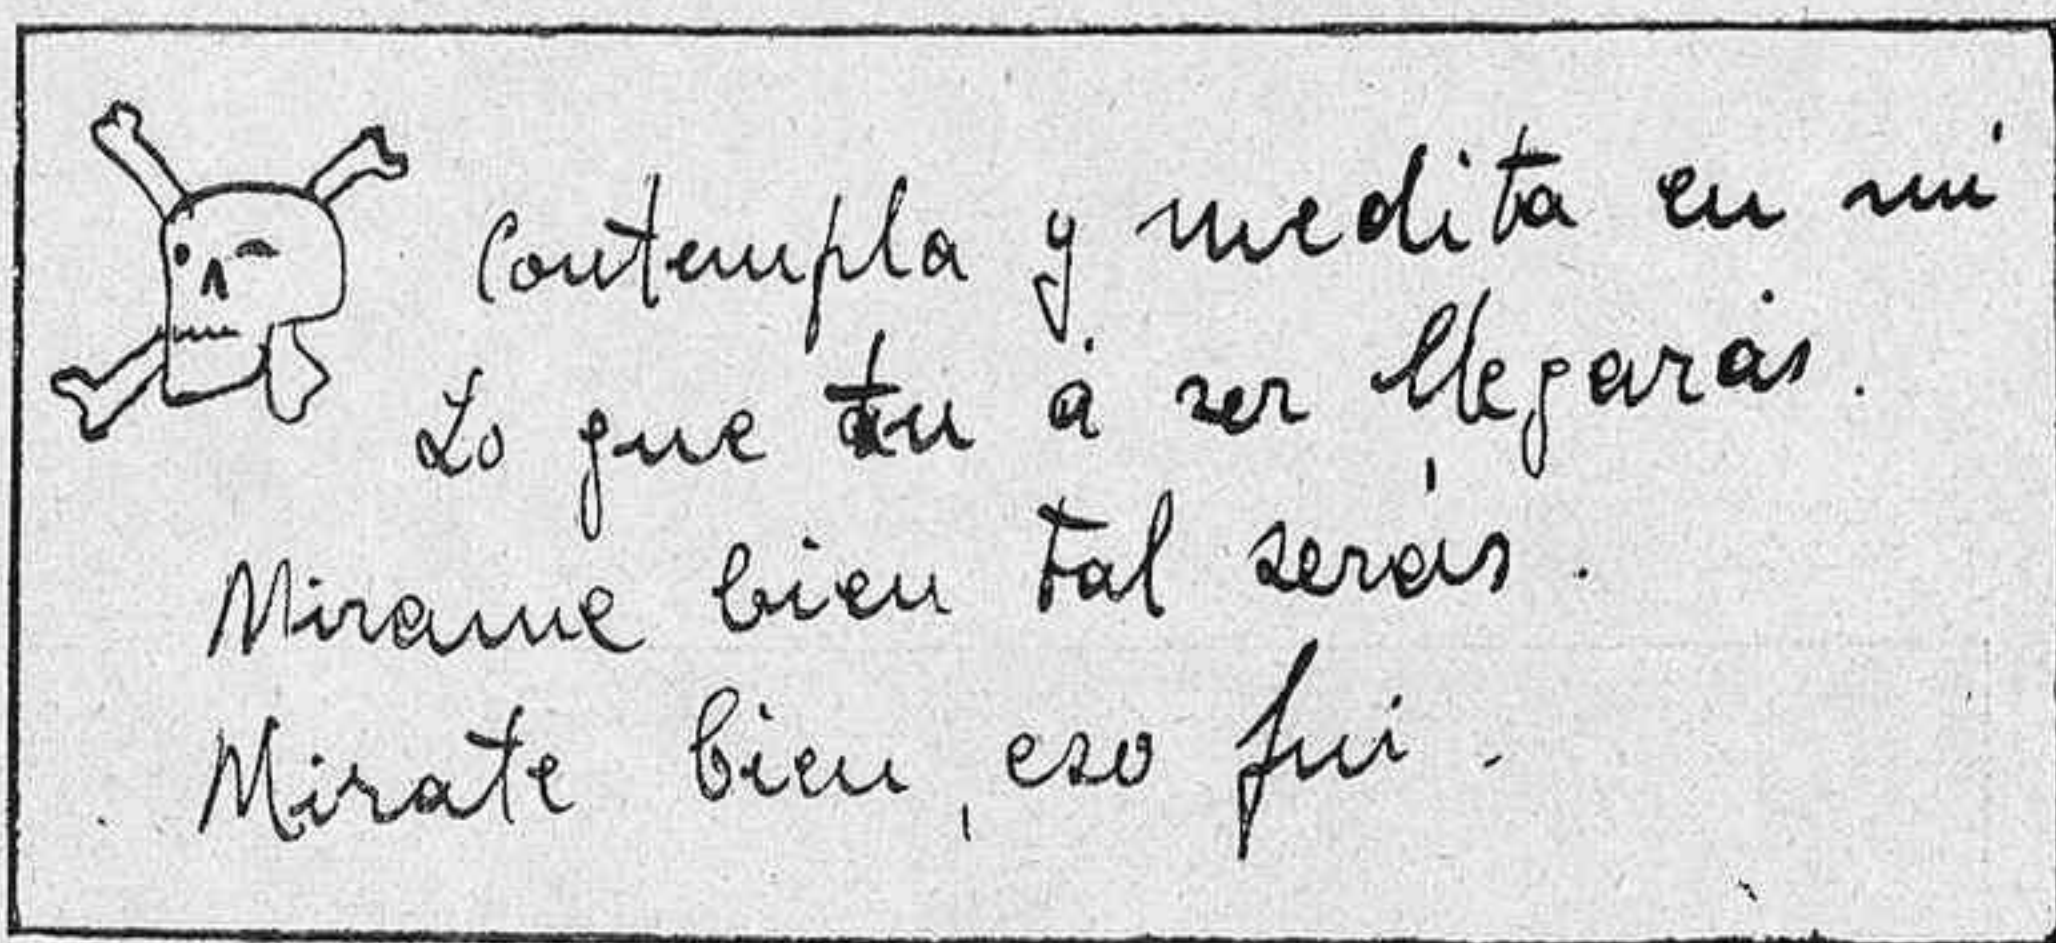 Contempla y medita en mi
Lo que tu á ser llegarás.
Mirame bien tal serás.
Mirate bien, eso fui.